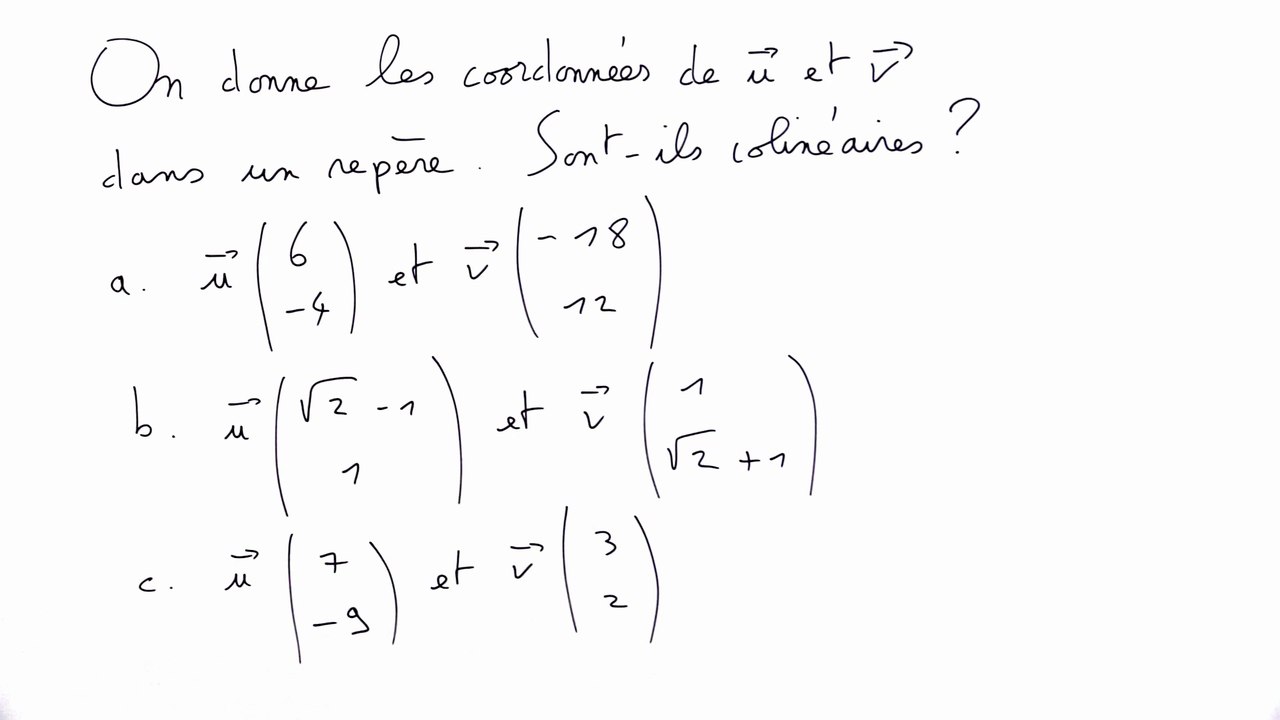 On donne les coordonnées de u⃗ et v⃗
dans un repère. Sont-ils colinéaires ?
a. u⃗ (6 ; -4) et v⃗ (-18 ; 12)
b. u⃗ (√2 - 1 ; 1) et v⃗ (1 ; √2 + 1)
c. u⃗ (7 ; -9) et v⃗ (3 ; 2)